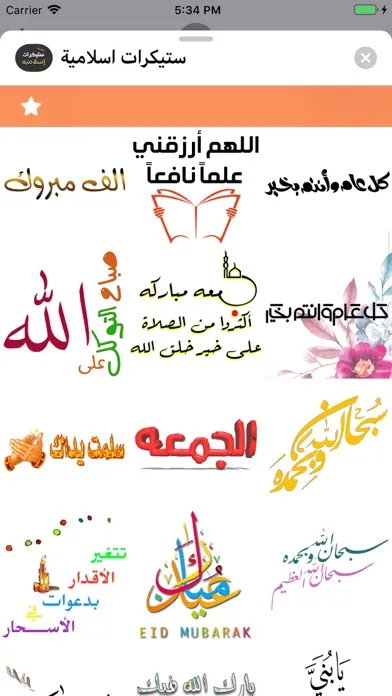 Carrier 5:34 PM
ستيكرات اسلامية
ستيكرات
إسلامية
الف مبروك
اللهم أرزقني
علماً نافعاً
كل عام وأنتم بخير
صباح التوكل
على
الله
جمعه مباركه
أكثروا من الصلاة
على خير خلق الله
كل عام وانتم بخير
سلمت يداك
الجمعه
سبحان الله
وبحمده
تتغير
الأقدار
بدعوات
في
الأسحار
عيد
مبارك
EID MUBARAK
سبحان الله وبحمده
سبحان الله العظيم
بارك الله فيك
يا بني